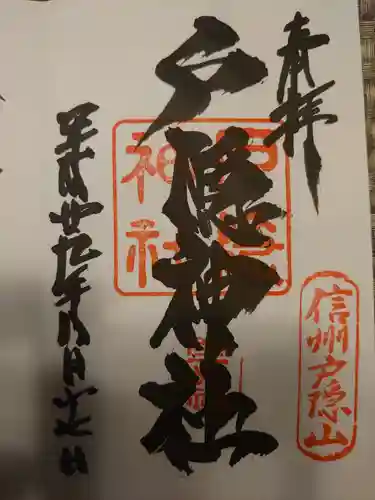 奉拝
信州戸隠山
戸隠神社
戸隠神社
平成廿九年八月